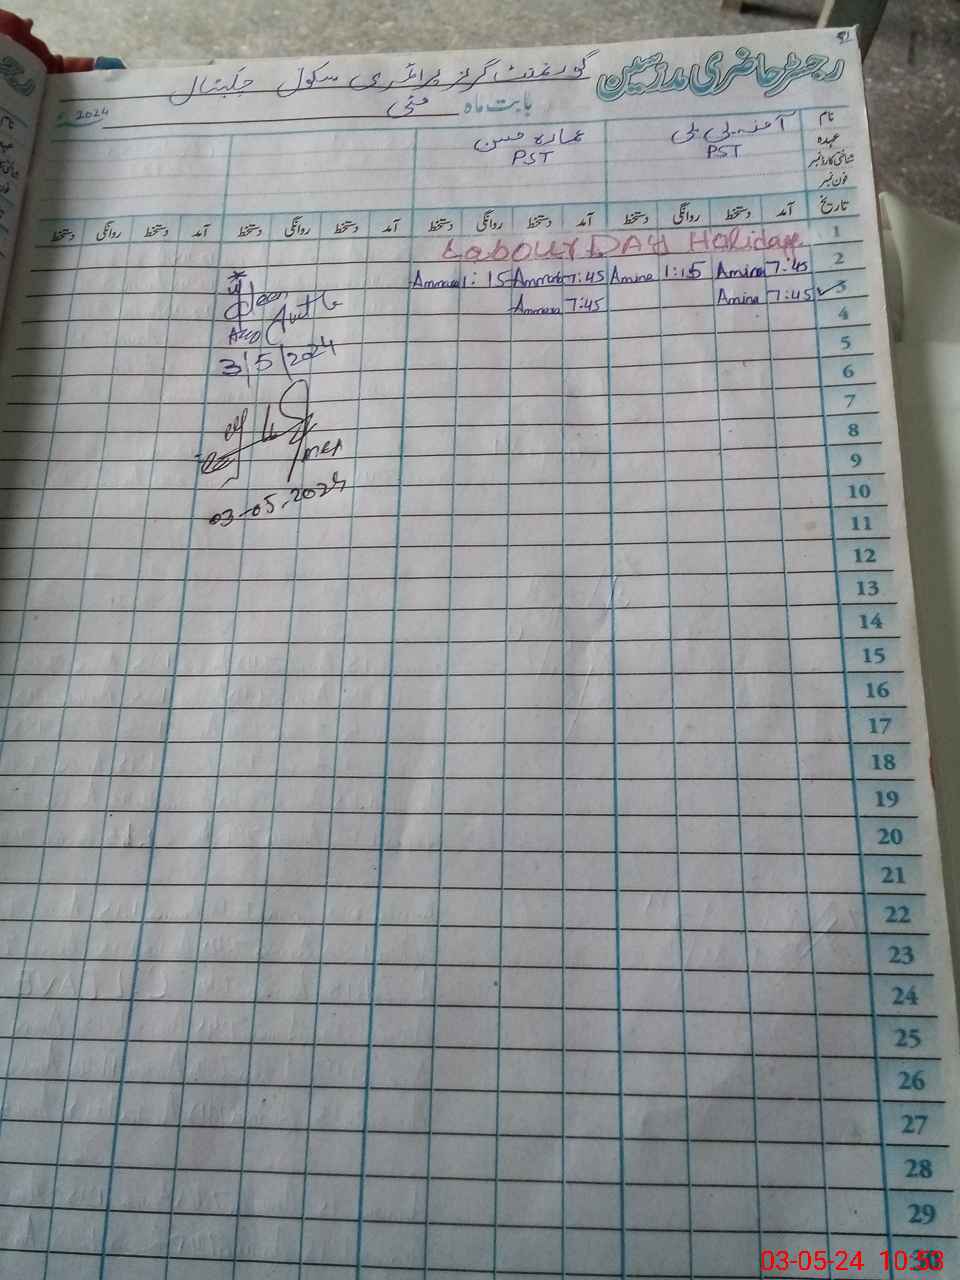 51
رجسٹر حاضری مدرسین
گورنمنٹ گرلز پرائمری سکول
بابت ماہ مئی 2024
نام آمنہ بی بی عمارہ حسن
عہدہ PST PST
شناختی کارڈ نمبر
فون نمبر
تاریخ آمد دستخط روانگی دستخط آمد دستخط روانگی دستخط آمد دستخط روانگی دستخط آمد دستخط روانگی دستخط
1 Labour DAY Holiday
2 7:45 Amina 1:15 Amina 7:45 Ammara 1:15 Ammara
3 7:45 Amina 7:45 Ammara
4
5
3/5/2024
6
7
8
9
10
03-05-2024
11
12
13
14
15
16
17
18
19
20
21
22
23
24
25
26
27
28
29
30
03-05-24 10:53